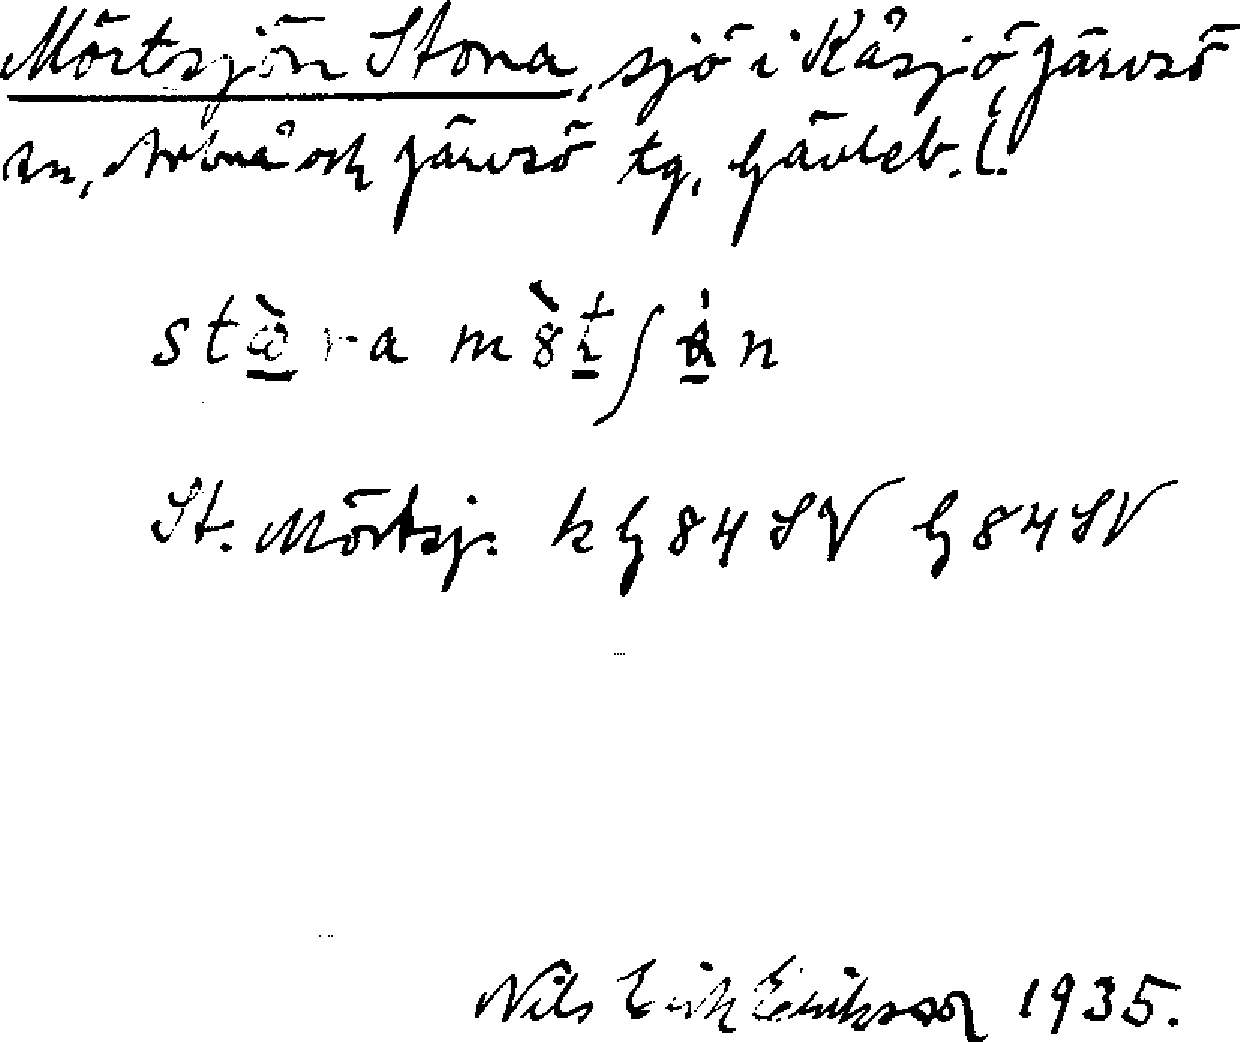 Mörtsjön Stora, sjö i Kåsjö, Järvsö
sn, Arbrå och Järvsö tg, Gävleb. l.
St. Mörtsj. k G 84 SV G 84 SV
Nils Erik Eriksson 1935.